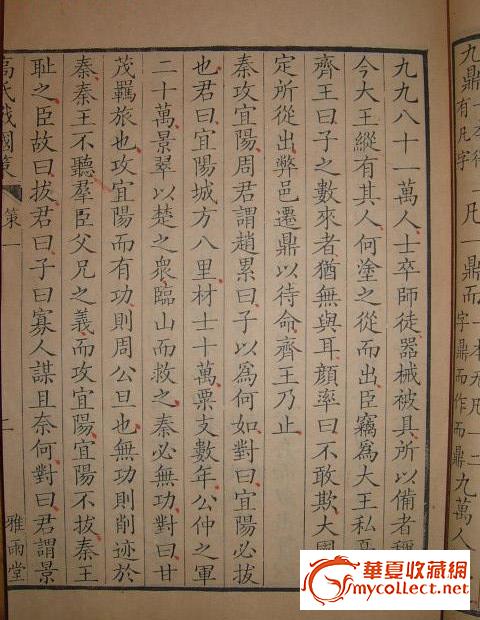 九鼎
有凡字
凡一鼎而
字鼎而作而鼎
九萬人
九九八十一萬人士卒師徒器械被具所以備者
今大王縱有其人何塗之從而出臣竊爲大王私
齊王曰子之數來者猶無與耳顔率曰不敢欺大國
定所從出弊邑遷鼎以待命齊王乃止
秦攻宜陽周君謂趙累曰子以爲何如對曰宜陽必拔
也君曰宜陽城方八里材士十萬粟支數年公仲之軍
二十萬景翠以楚之衆臨山而救之秦必無功對曰甘
茂羈旅也攻宜陽而有功則周公旦也無功則削迹於
秦秦王不聽羣臣父兄之義而攻宜陽宜陽不拔秦王
耻之臣故曰拔君曰子曰寡人謀且奈何對曰君謂景
高氏戰國策
第一
二
雅雨堂
華夏收藏網
mycollect.net